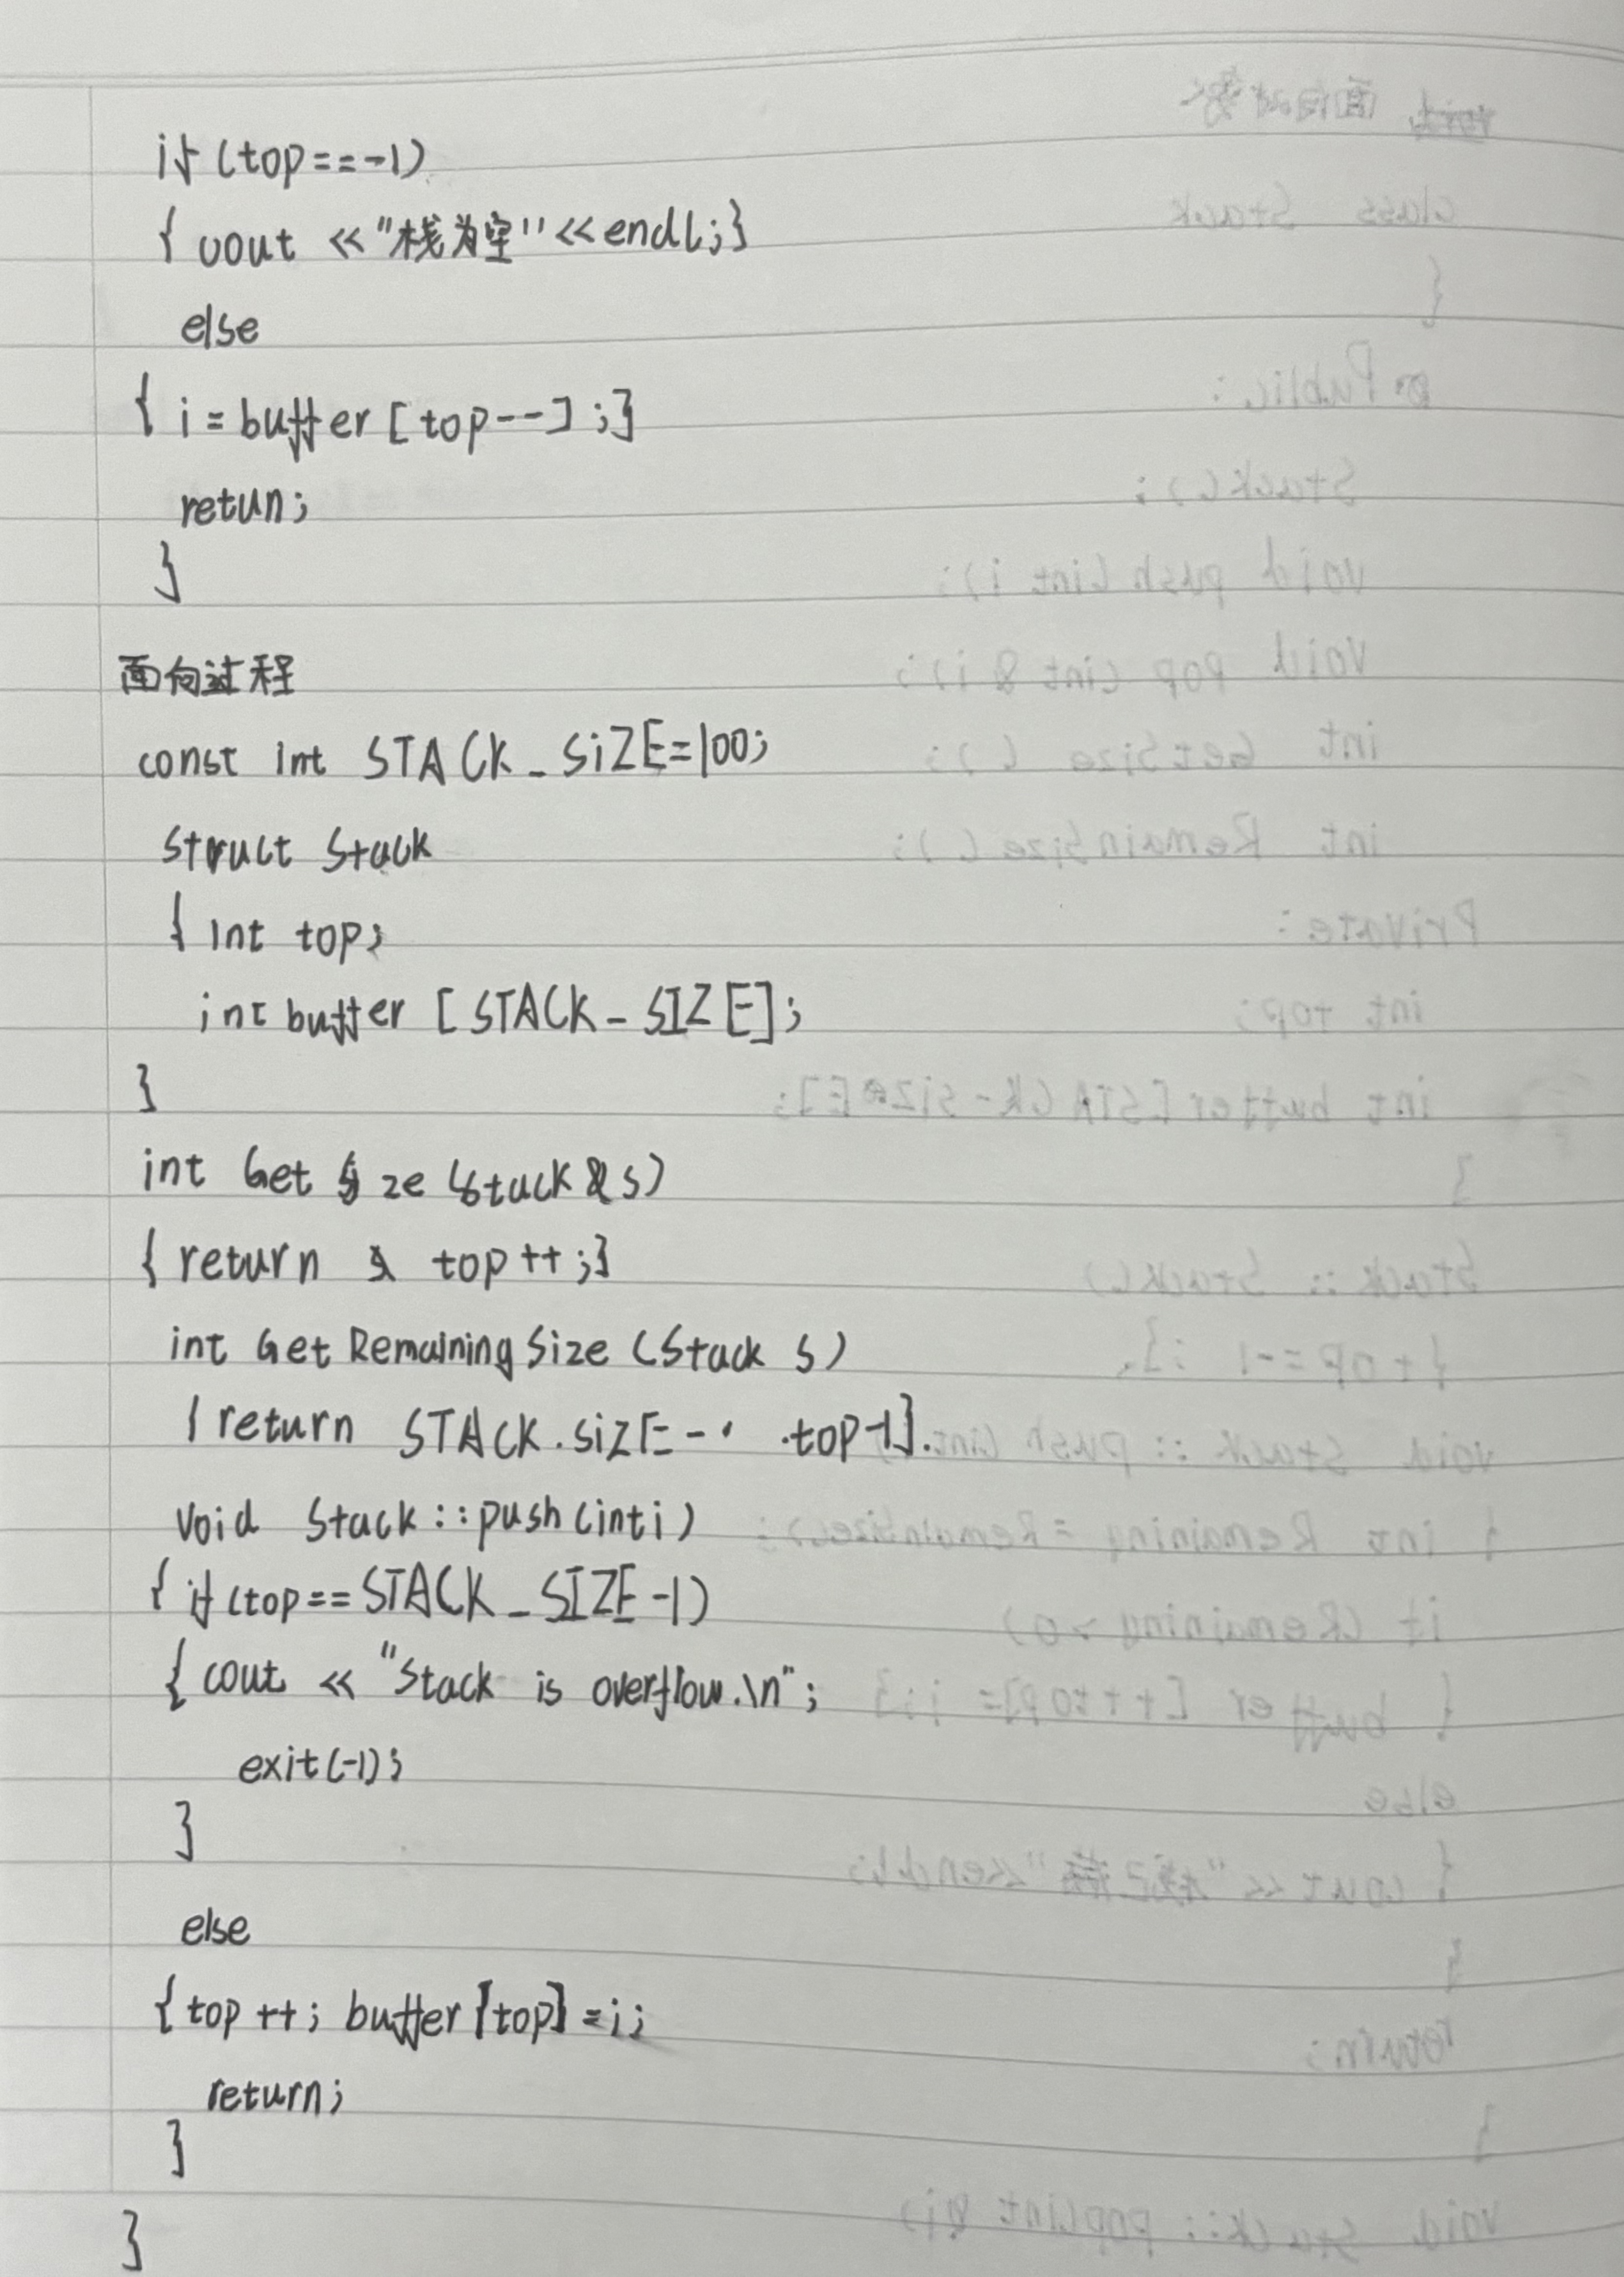 if (top==-1)
{ cout <<"栈为空"<<endl;}
else
{ i=buffer [top--];}
retun;
}
面向过程
const int STACK_SiZE=100;
struct Stack
{ int top;
int buffer [STACK_SIZE];
}
int Get Size (Stack & s)
{ return top++;}
int Get Remaining Size (Stack s)
{ return STACK.SiZE- .top-1}.
void Stack::push(int i)
{ if (top==STACK_SIZE-1)
{ cout << "Stack is overflow.\n";
exit(-1);
}
else
{ top++; buffer[top]=i;
return;
}
}